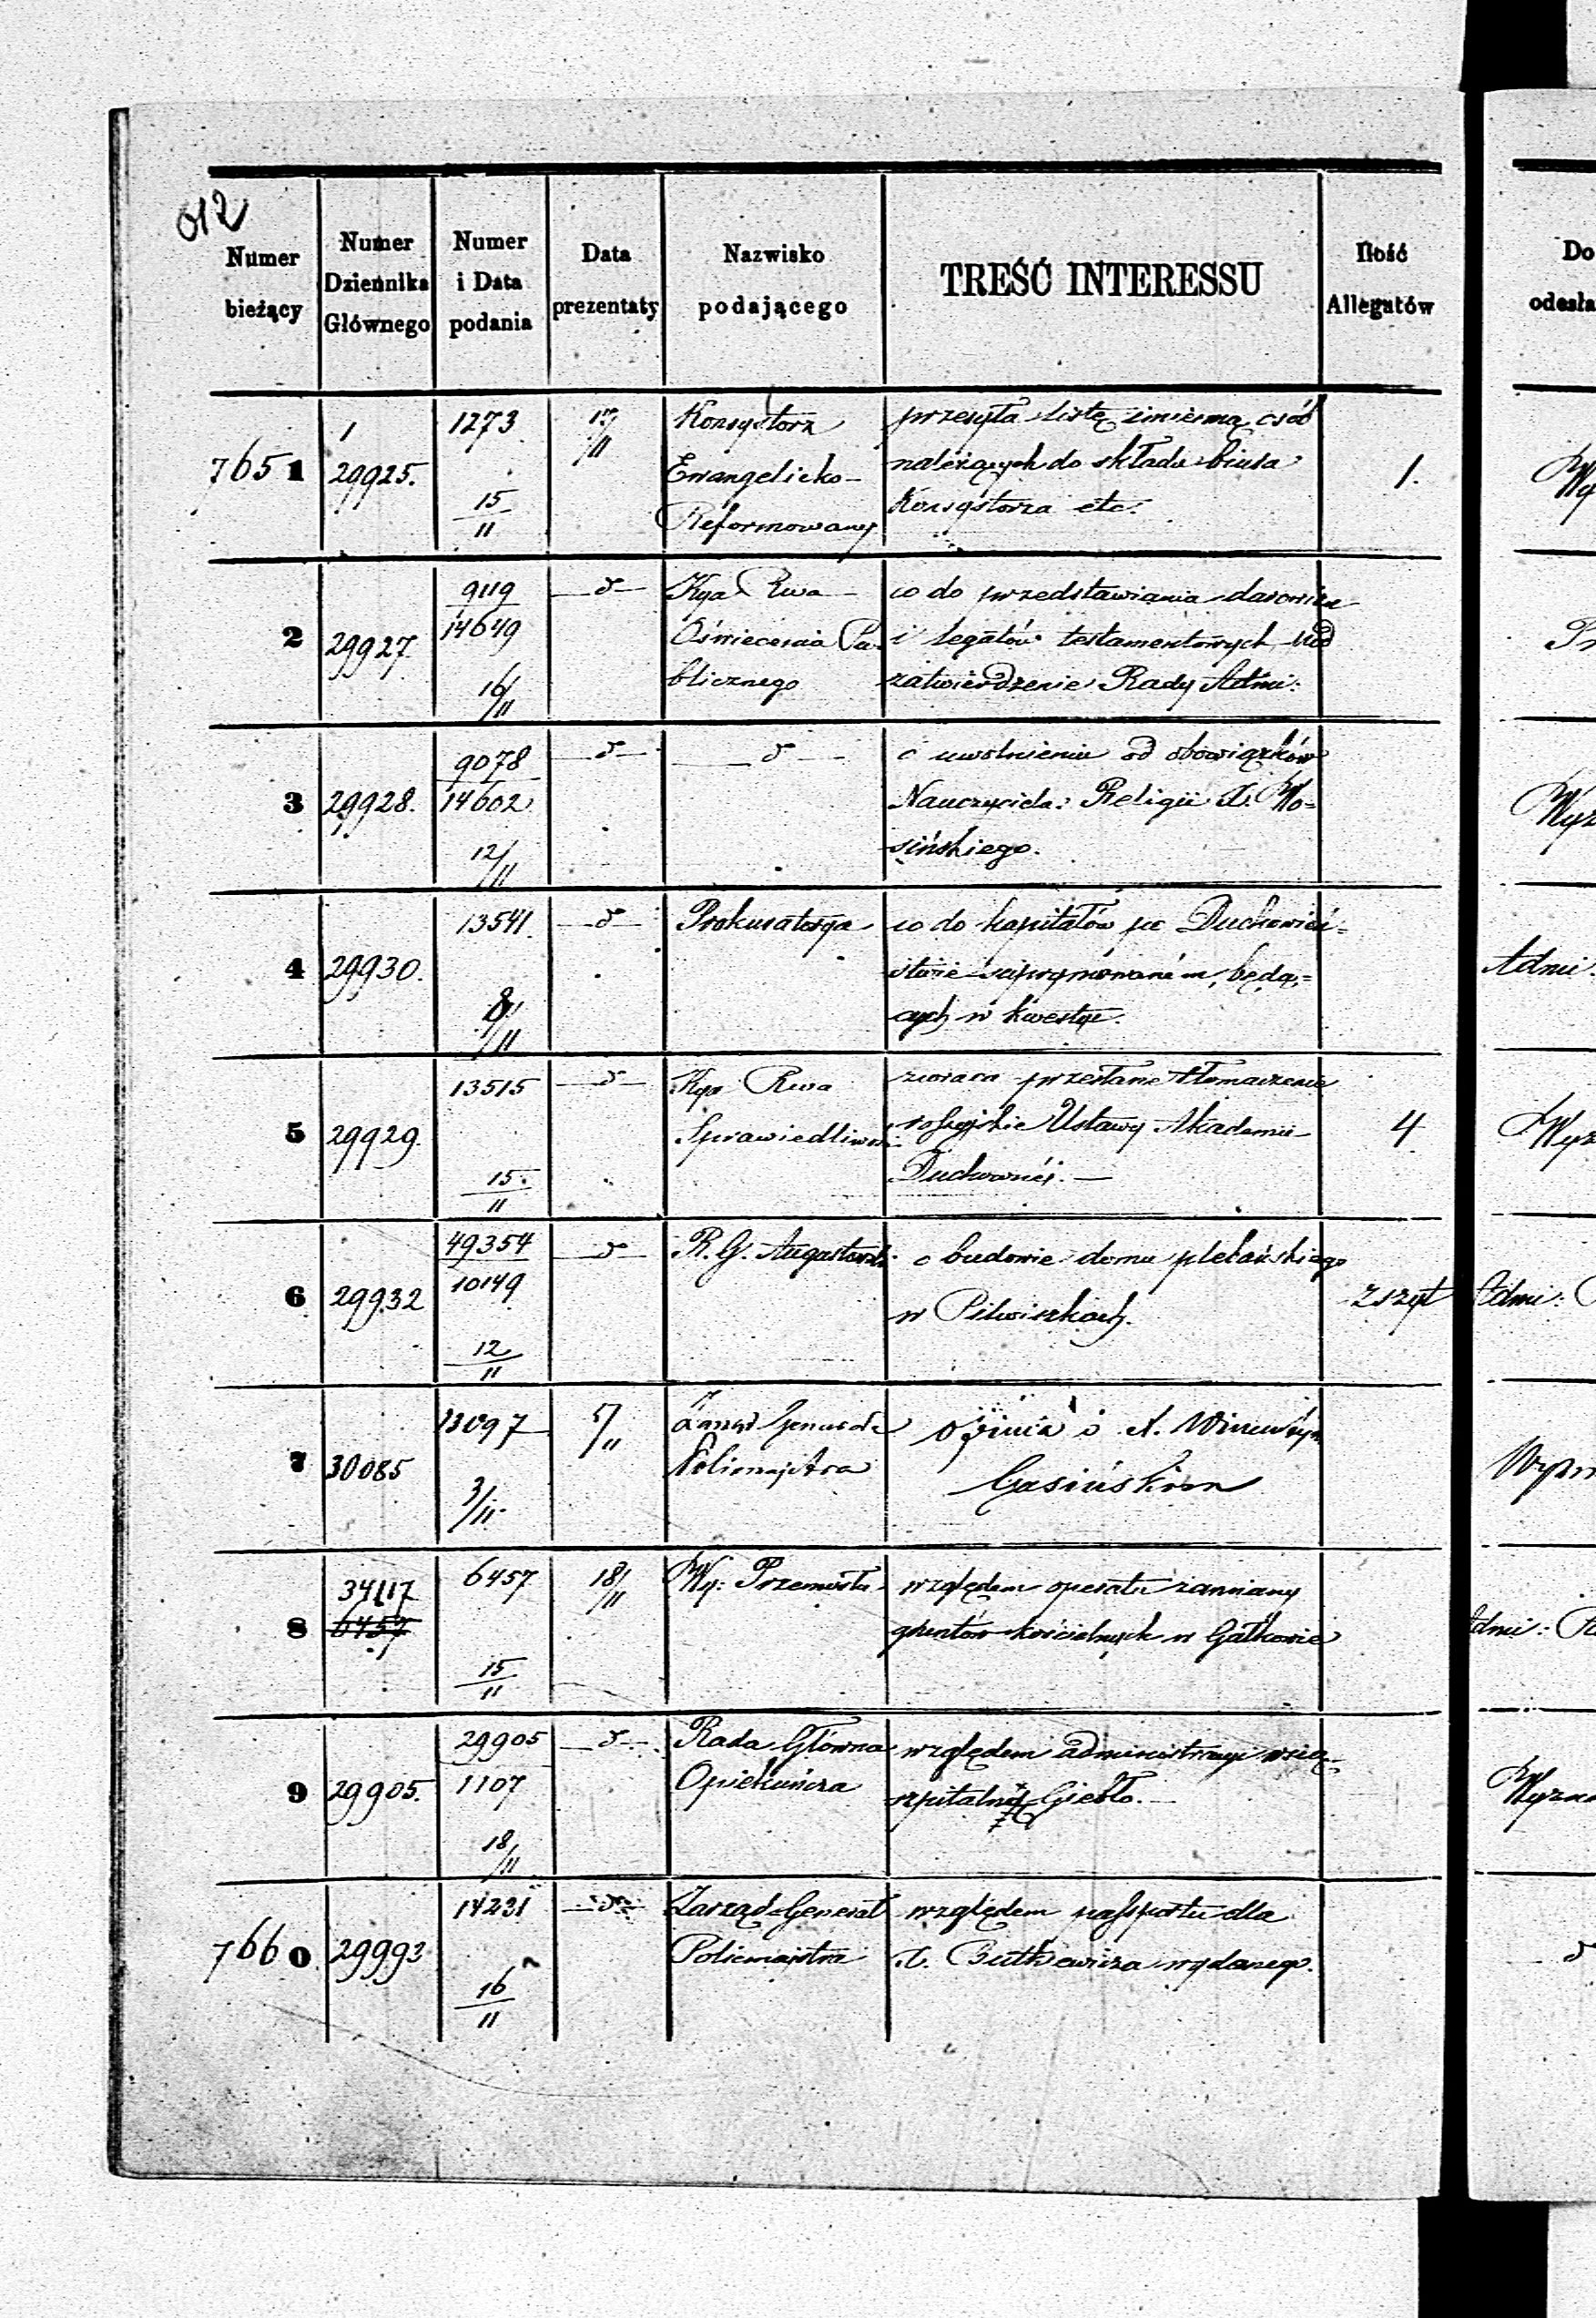 012
Numer bieżący
Numer Dziennika Głównego
Numer i Data podania
Data prezentaty
Nazwisko podającego
TREŚĆ INTERESSU
Ilość Allegatów
Do
odesła
7651
1
29925.
1273
15/11
17/11
Konsystorz
Ewangelicko-
Reformowany
przesyła listę imienną osób
należących do składu biura
Konsystorza etc.
1.
2
29927
9119
14649
16/11
d
Kya Rwa
Oświecenia Pu-
blicznego
co do przedstawiania darowizn
i legatów testamentowych pod
zatwierdzenie Rady Admi:
3
29928.
9078
14602
12/11
d
d
o uwolnieniu od obowiązków
Nauczyciela Religii X. Wo-
sińskiego.
4
29930.
13541
8/11
d
Prokuratorya
co do kapitałów po Duchowień-
stwie będą-
cych w kwestyi.
Admi:
5
29929.
13515
15/11
d
Kya Rwa
Sprawiedliwości
zwraca przesłane tłomaczenie
rossyjskie Ustawy Akademii
Duchownéj.
4
6
29932
49354
10149
12/11
d
R. G. Augustowski
o budowie domu plebańskiego
w Pilwiszkach.
zszyt
Admi:
7
30085
13097
3/11
5/11
Zarząd Generał
Policmajstra
opinia o X.
Gasińskim
8
34117
6457
6457
15/11
18/11
Wy: Przemysłu
względem operatu zamiany
gruntów kościelnych w Gałkowie
Admi:
9
29905.
29905
1107
18/11
d
Rada Główna
Opiekuńcza
względem administracyi wsi
szpitalnéj Giebło.
7660
29993
14231
16/11
d
Zarząd Generał
Policmajstra
względem passportu dla
X. Butkiewicza wydanego.
d